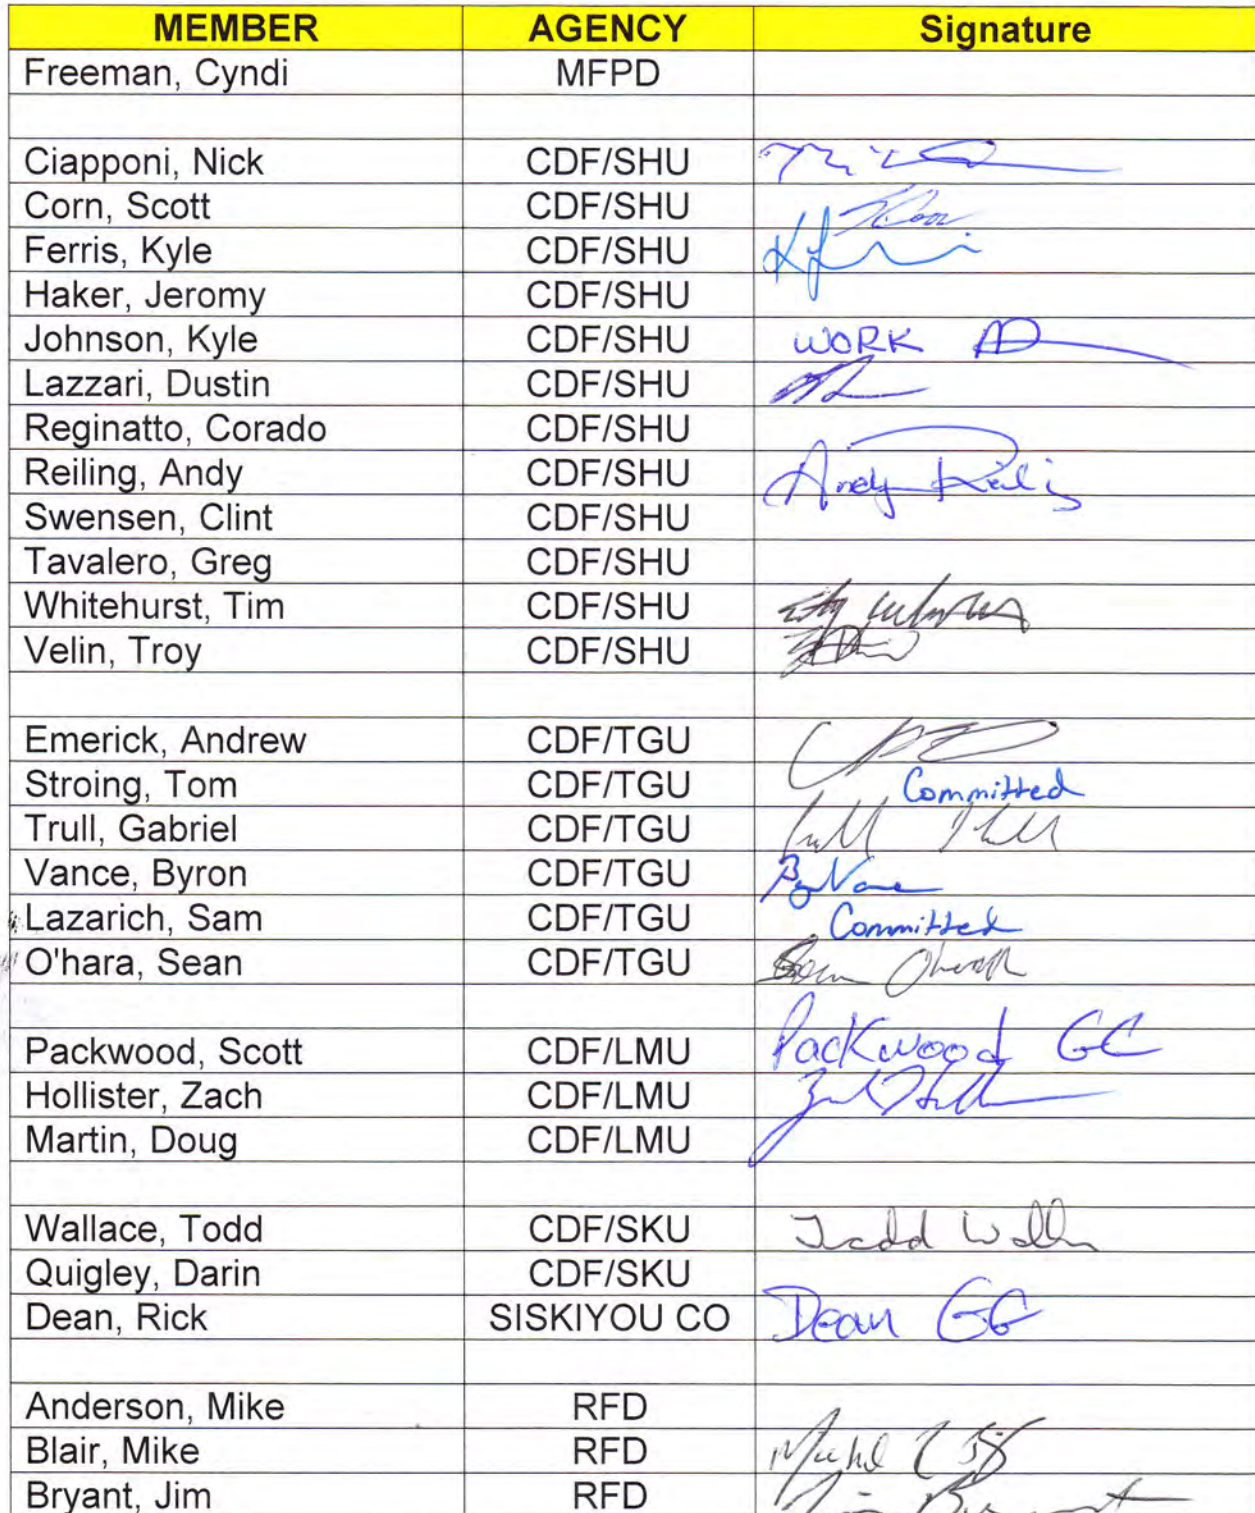 MEMBER AGENCY Signature
Freeman, Cyndi MFPD
Ciapponi, Nick CDF/SHU
Corn, Scott CDF/SHU
Ferris, Kyle CDF/SHU
Haker, Jeromy CDF/SHU
Johnson, Kyle CDF/SHU WORK
Lazzari, Dustin CDF/SHU
Reginatto, Corado CDF/SHU
Reiling, Andy CDF/SHU Andy
Swensen, Clint CDF/SHU
Tavalero, Greg CDF/SHU
Whitehurst, Tim CDF/SHU
Velin, Troy CDF/SHU
Emerick, Andrew CDF/TGU
Stroing, Tom CDF/TGU Committed
Trull, Gabriel CDF/TGU
Vance, Byron CDF/TGU
Lazarich, Sam CDF/TGU Committed
O'hara, Sean CDF/TGU
Packwood, Scott CDF/LMU Packwood GC
Hollister, Zach CDF/LMU
Martin, Doug CDF/LMU
Wallace, Todd CDF/SKU Todd
Quigley, Darin CDF/SKU
Dean, Rick SISKIYOU CO Dean GC
Anderson, Mike RFD
Blair, Mike RFD
Bryant, Jim RFD